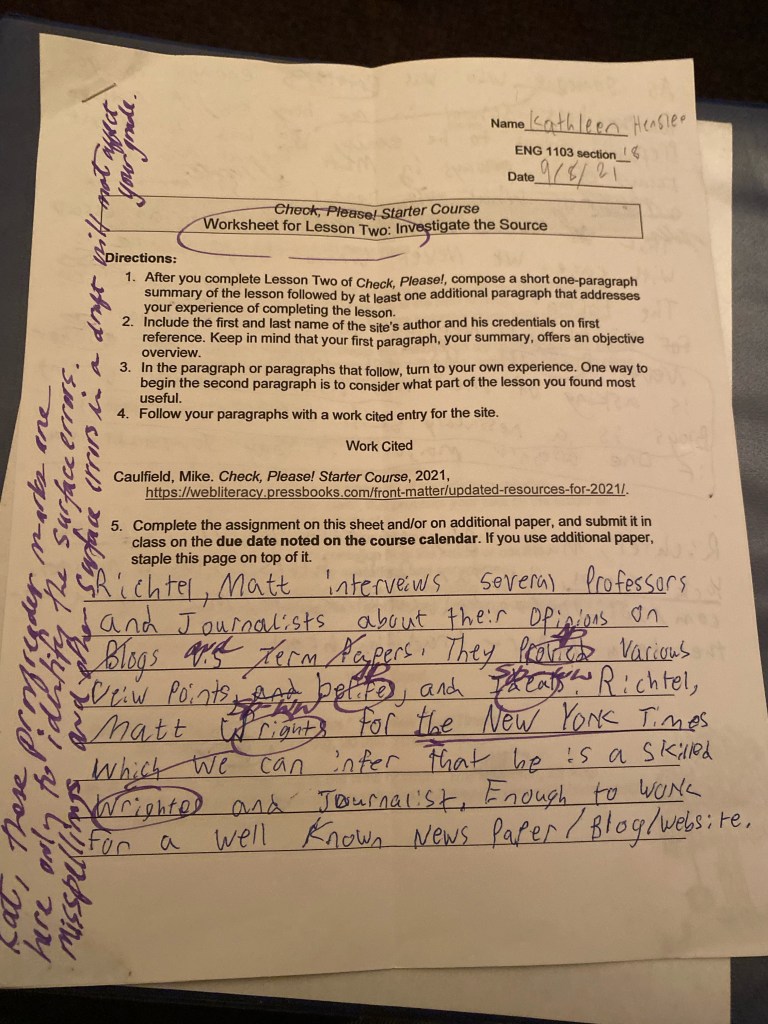 Name Kathleen Henslee
ENG 1103 section 18
Date 9/8/21
Check, Please! Starter Course
Worksheet for Lesson Two: Investigate the Source
Directions:
1. After you complete Lesson Two of Check, Please!, compose a short one-paragraph
summary of the lesson followed by at least one additional paragraph that addresses
your experience of completing the lesson.
2. Include the first and last name of the site's author and his credentials on first
reference. Keep in mind that your first paragraph, your summary, offers an objective
overview.
3. In the paragraph or paragraphs that follow, turn to your own experience. One way to
begin the second paragraph is to consider what part of the lesson you found most
useful.
4. Follow your paragraphs with a work cited entry for the site.
Work Cited
Caulfield, Mike. Check, Please! Starter Course, 2021,
https://webliteracy.pressbooks.com/front-matter/updated-resources-for-2021/.
5. Complete the assignment on this sheet and/or on additional paper, and submit it in
class on the due date noted on the course calendar. If you use additional paper,
staple this page on top of it.
Richtel, Matt interveiws several Professors
and Journalists about their Opinions on
Blogs v.s Term Papers. They Various
sp
Veiw Points, and , and . Richtel,
sp
sp ww
Matt rights for the New York Times
sp ww
Which we can infer that he is a skilled
Wrighter and Journalist, Enough to work
for a well Known News Paper/Blog/website.
Kat, These proofreader marks are
here only to identify the surface errors.
Misspellings and other surface errors in a draft will not affect
your grade.